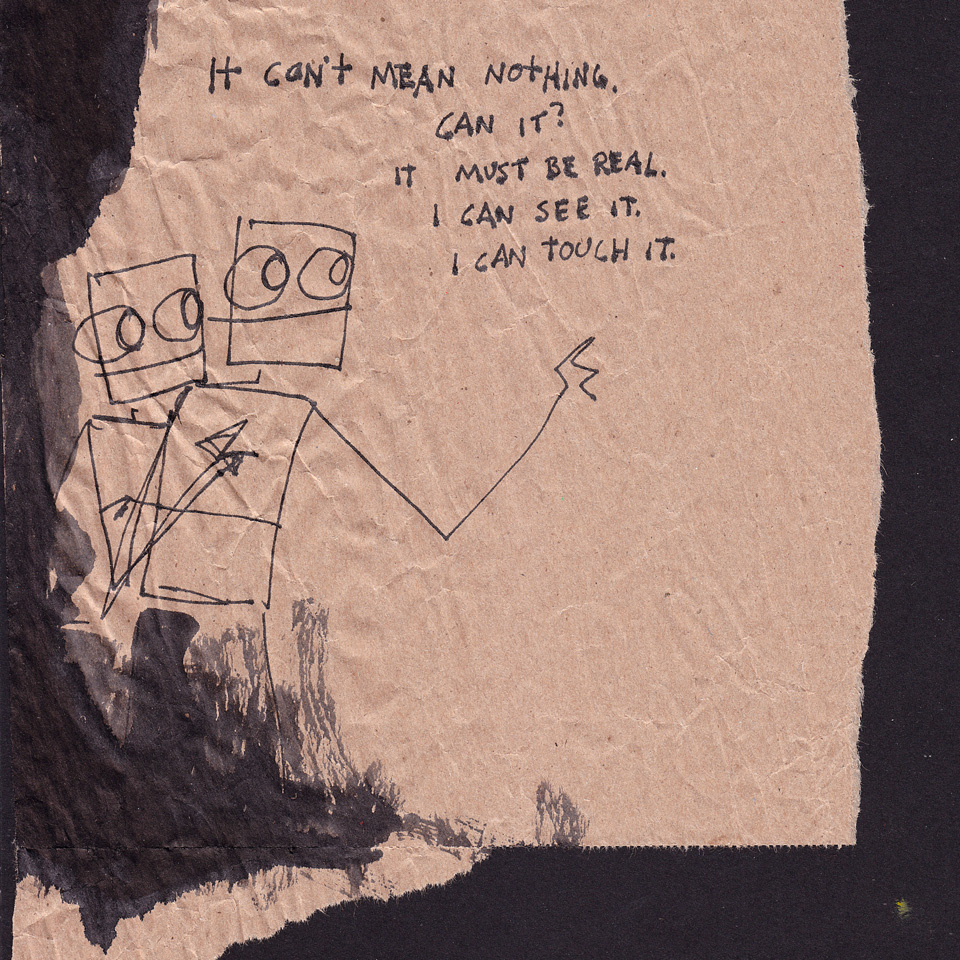 It CAN't MEAN NOtHING.
CAN IT?
IT MUST BE REAL.
I CAN SEE IT.
I CAN TOUCH IT.